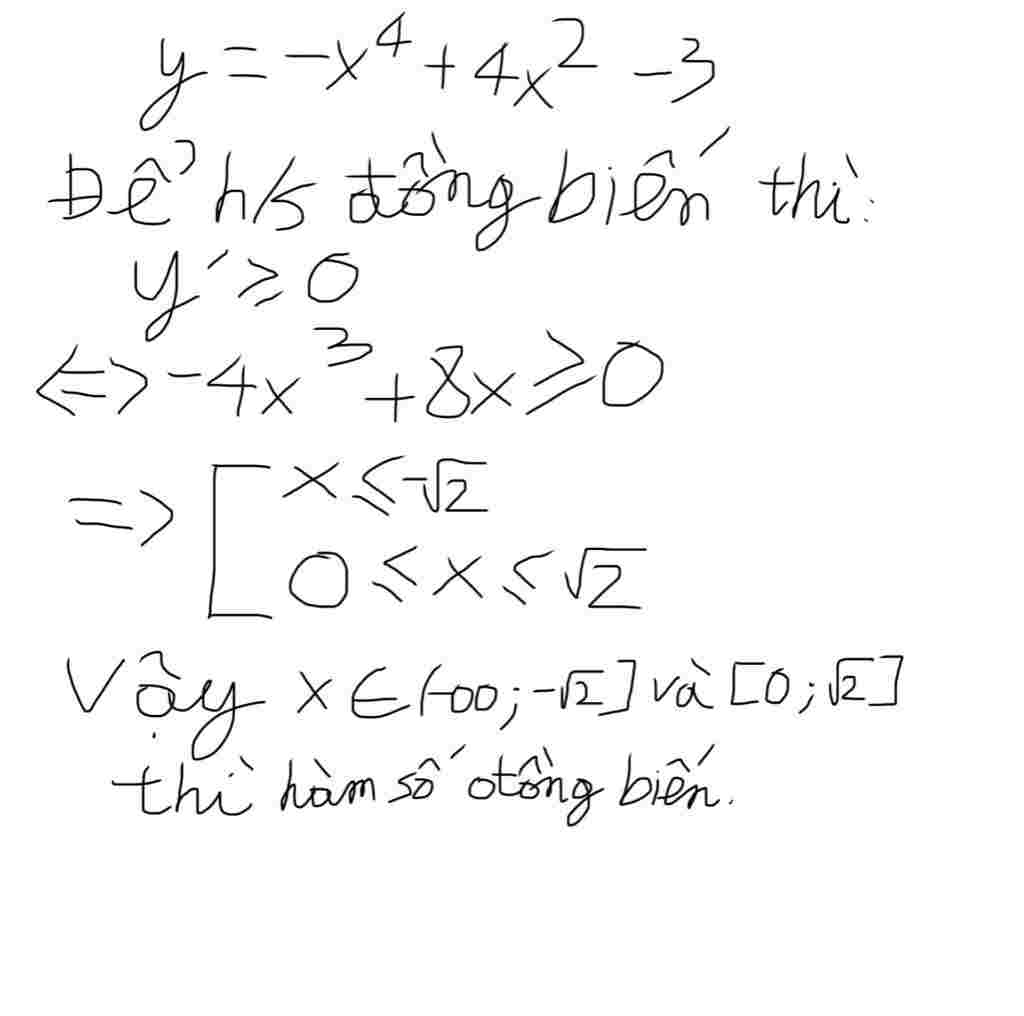 y = -x⁴ + 4x² - 3
Để h/s đồng biến thì:
y' ≥ 0
<=> -4x³ + 8x ≥ 0
=> [ x ≤ -√2
0 ≤ x ≤ √2
Vậy x ∈ (-∞; -√2] và [0; √2]
thì hàm số đồng biến.